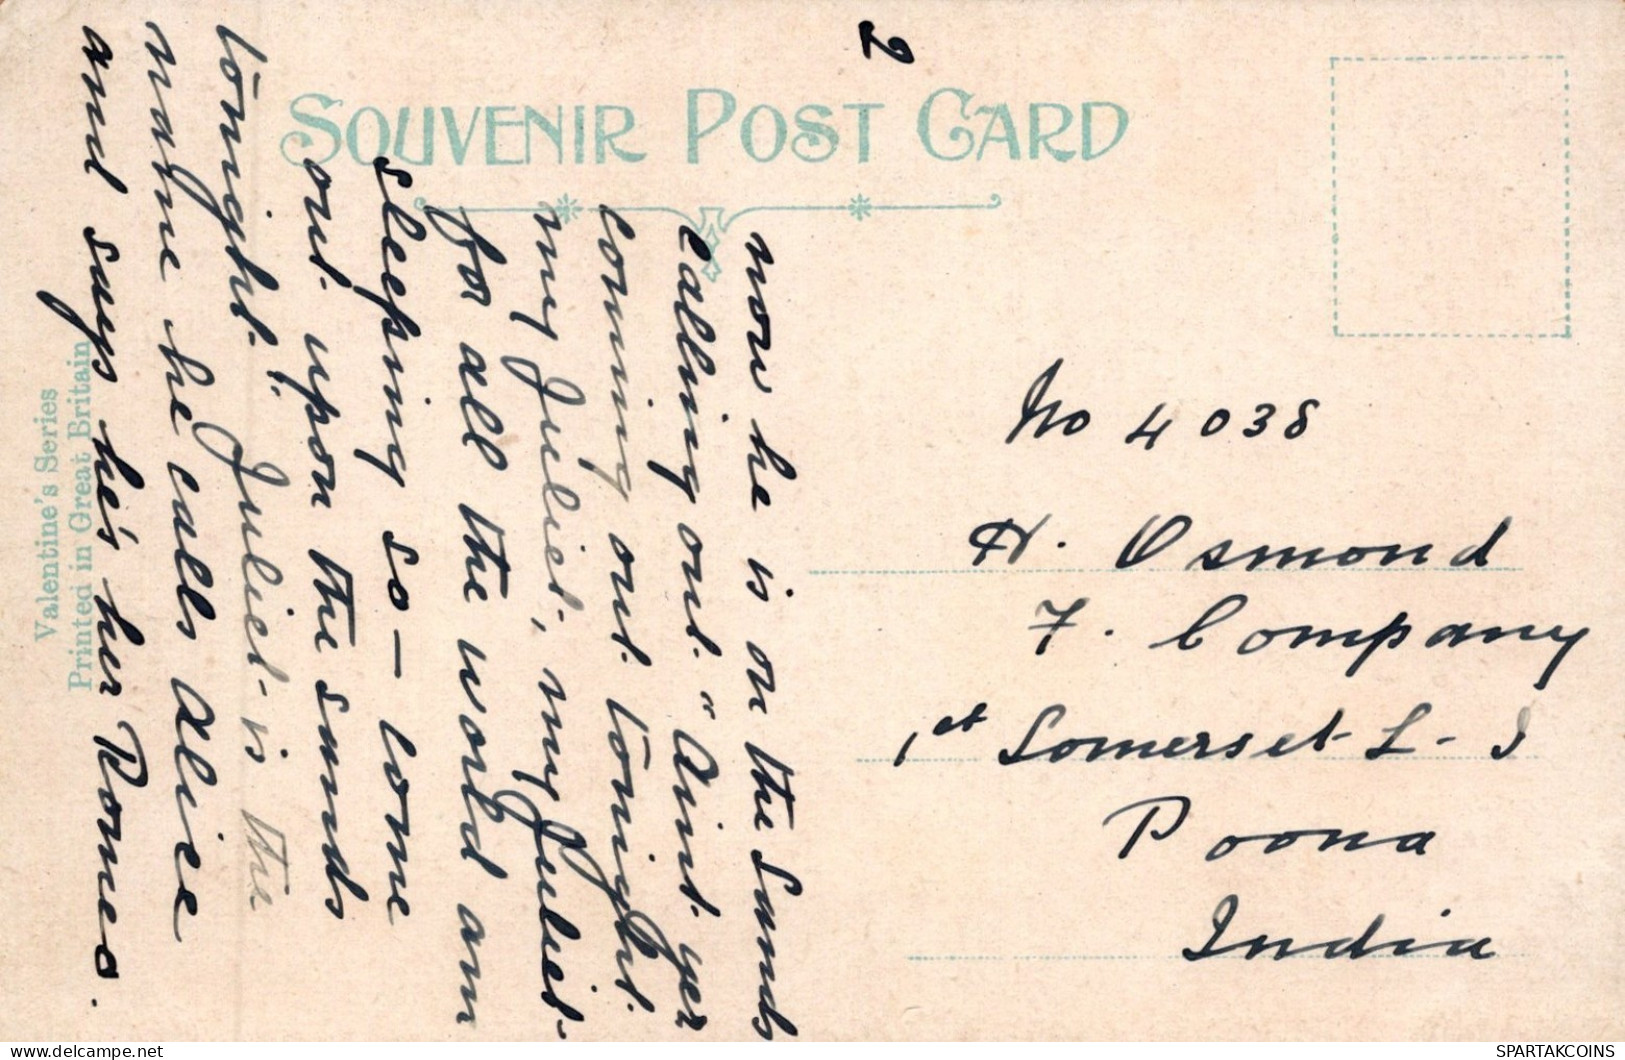 2
SOUVENIR POST CARD
now he is on the Sands
calling out. "Aint yer
coming out tonight.
my Juliet, my Juliet
for all the world am
sleeping so — come
out upon the sands
tonight." Juliet is the
name he calls Alice
and says he's her Romeo.
Valentine's Series
Printed in Great Britain
No 4038
H. Osmond
F. Company
1st Somerset L. I
Poona
India
SPARTAKCOINS
https://www.delcampe.net